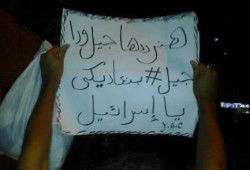 هنردها جيل ورا
جيل #بنعاديكي
يا إسرائيل
Y.A.C